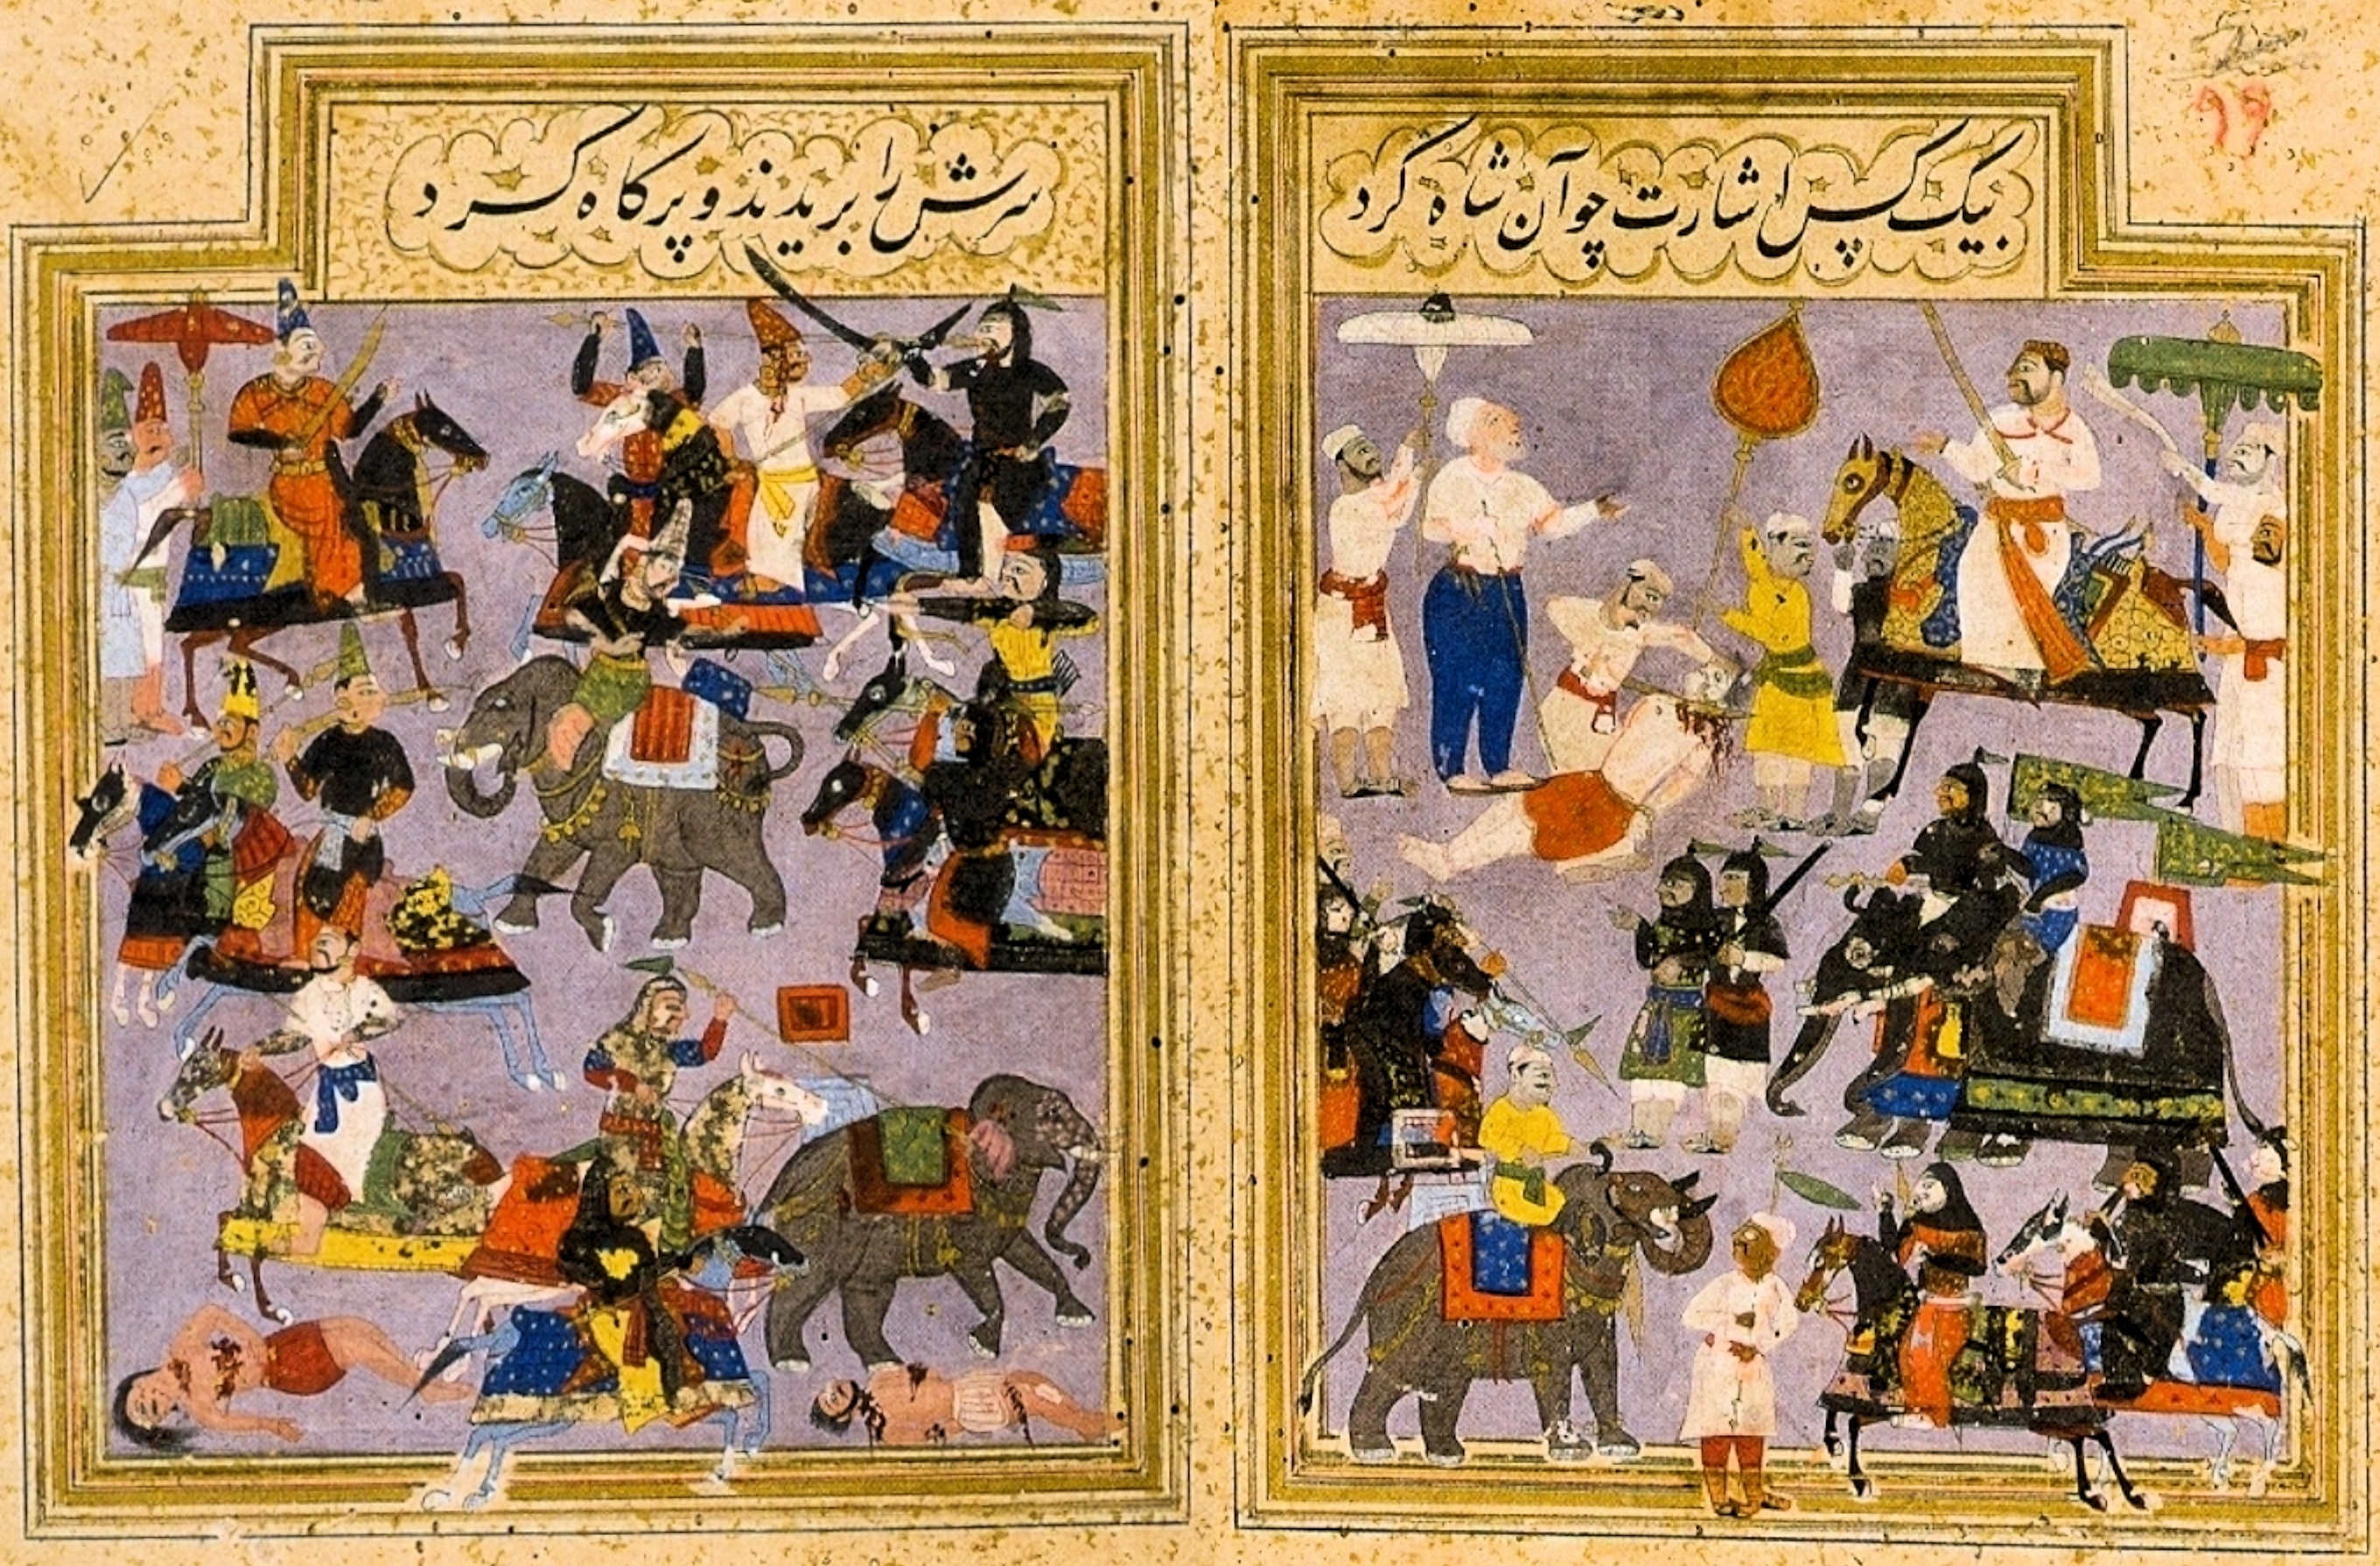 بیک کس اشارت چو آن شاه کرد
سرش را بریدند و پر کاه کرد
۹۹